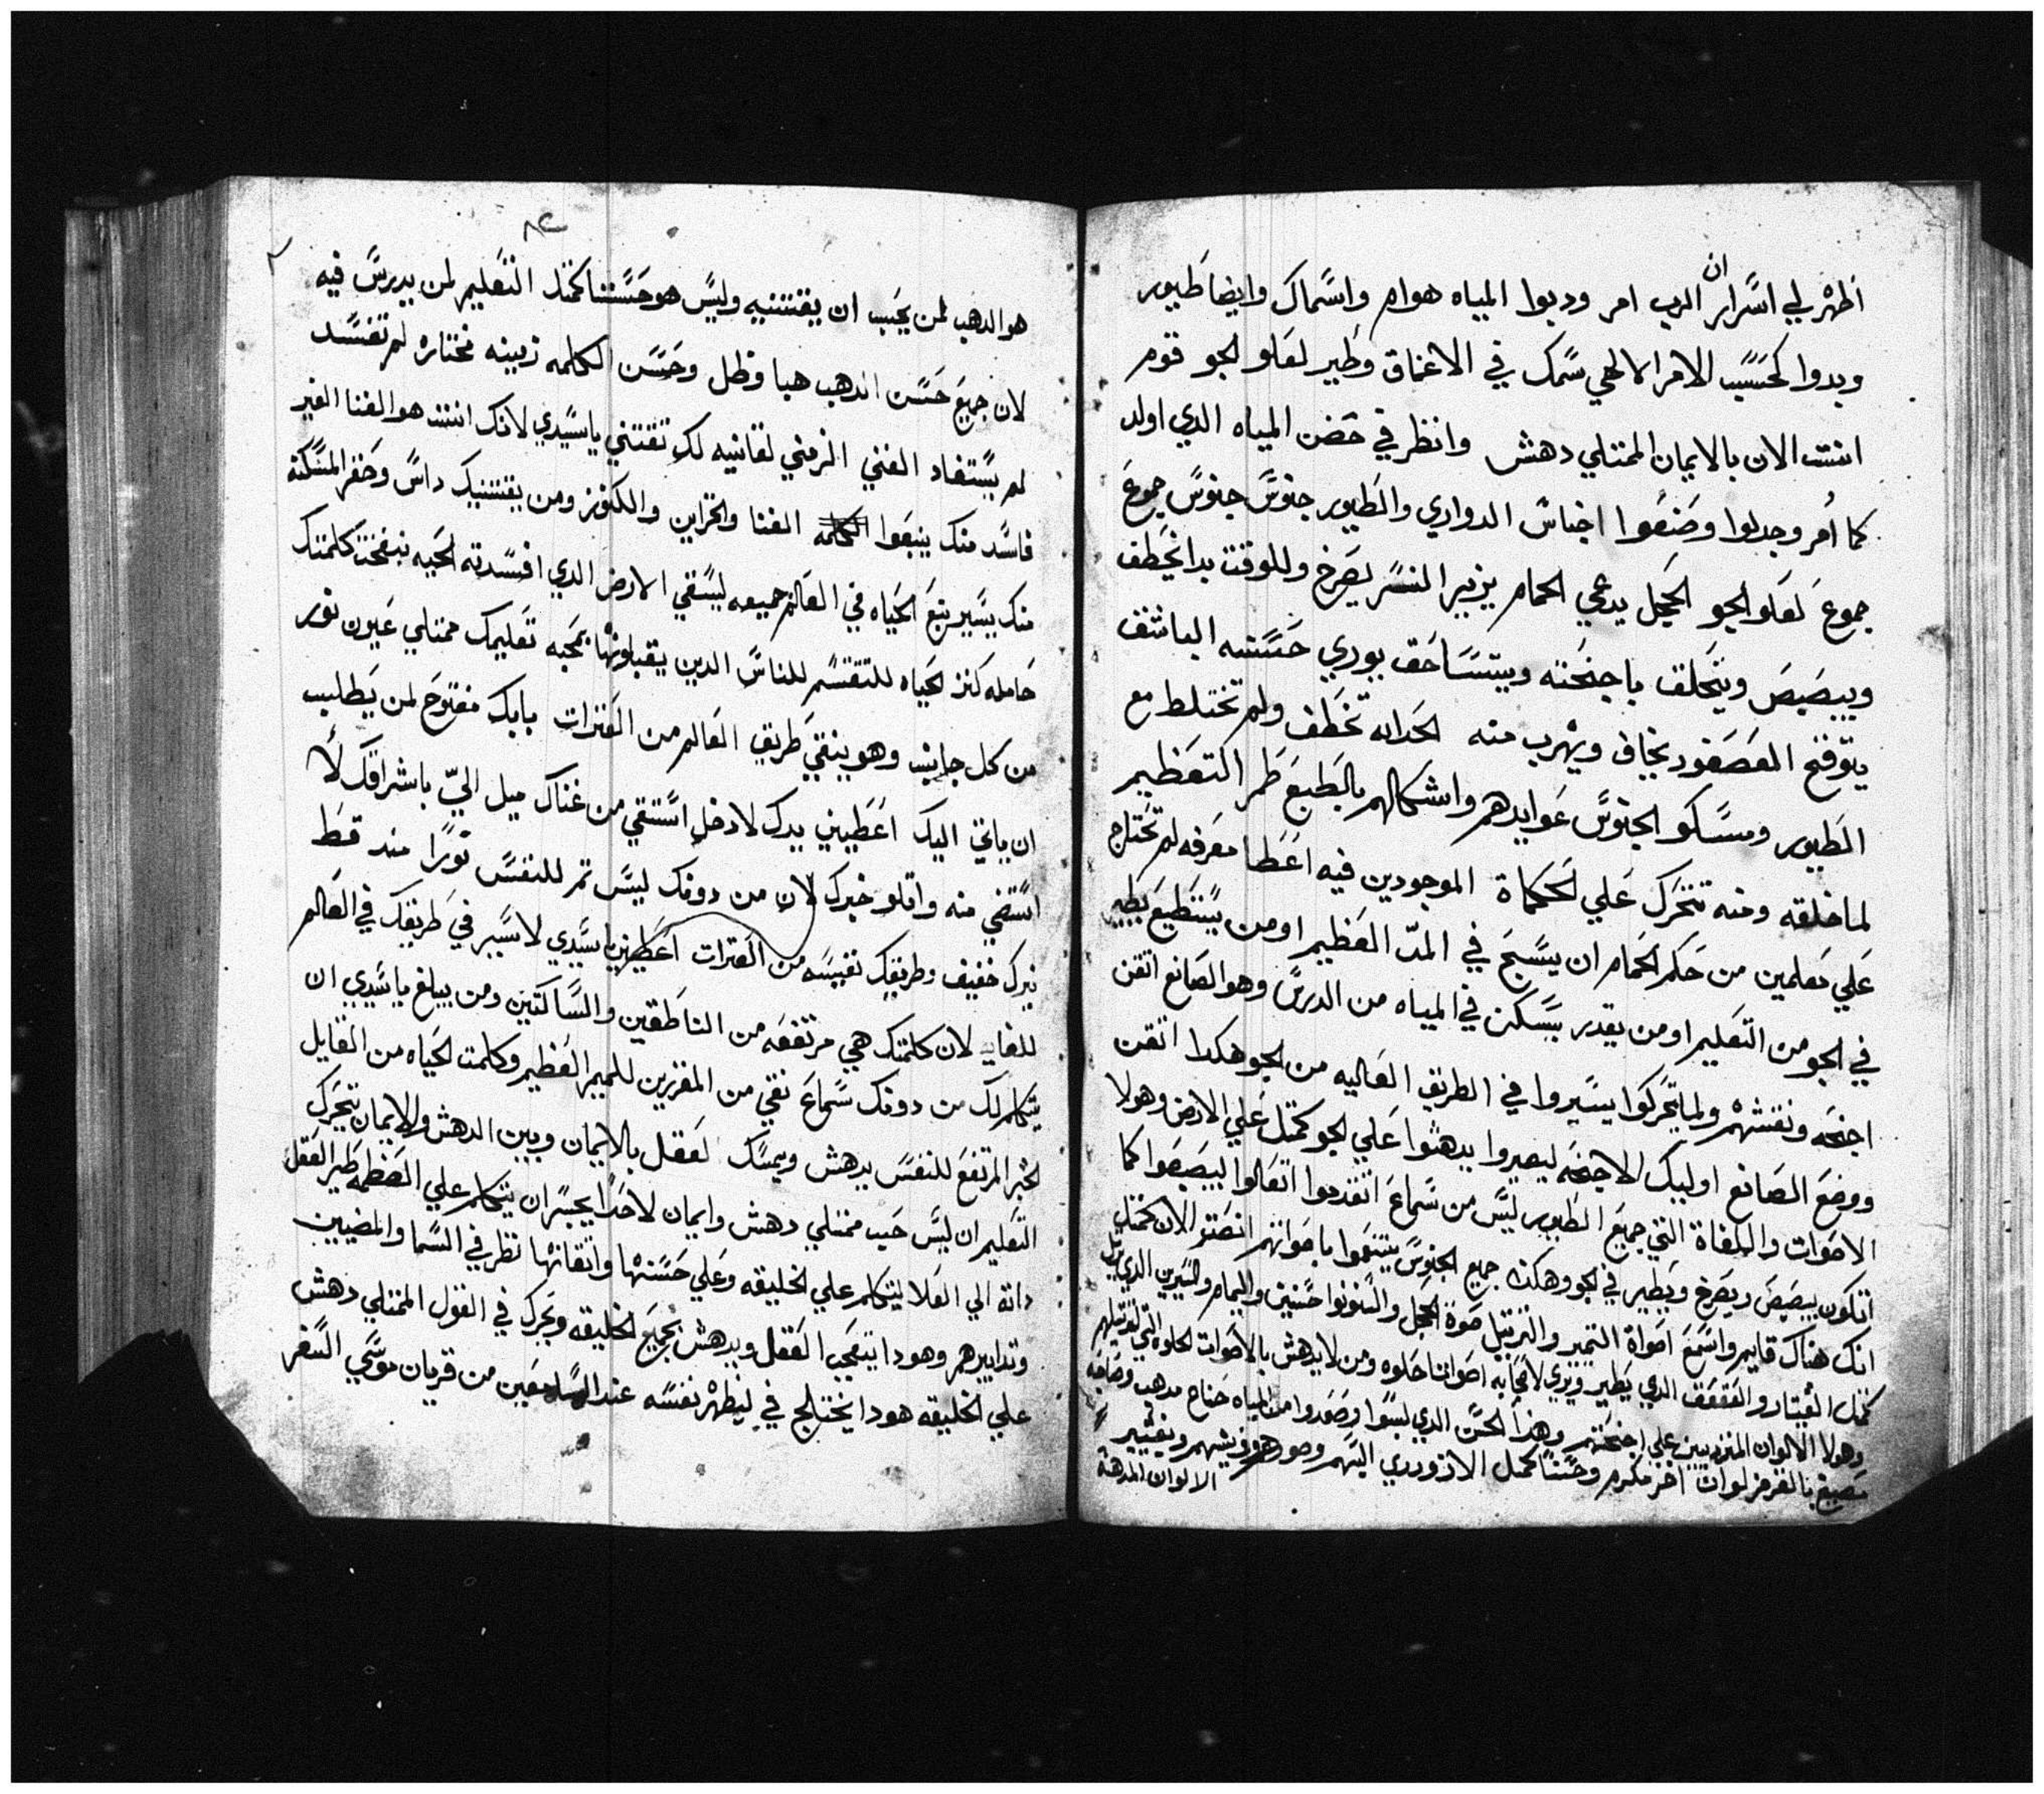 اظهر لي اسرار ان الرب امر ودبوا المياه هوام واسماك وايضا طيور
وبدوا كحسب الامر الالهي سمك في الاعماق وطير لعلو الجو قوم
انت الان بالايمان الممتلي دهش وانظر في حضن المياه الدي اولد
كما أمر وجدلوا وصنعوا اجناس الدواري والطيور جنوس جنوس جموع
جموع لعلو الجو الحجل يدعي الحمام يزير النسر يصرخ وللوقت بدا يخطف
ويبصبص ويتحلق باجنحته ويتساحق يوري حسنه الباشق
يتوقح العصفور يخاف ويهرب منه الحدايه تخطف ولم تختلط مع
الطيور ومسكو الجنوس عوايدهم واشكالهم بالطبع طمر التعظيم
لما خلقه ومنه تتحرك علي الحكماة الموجودين فيه اعطا معرفه لم تحتاج
علي معلمين من حكم الحمام ان يسبح في المد العظيم او من يستطيع يطير
في الجو من التعليم او من يقدر يسكن في المياه من الدرس وهو الصانع اتقن
اجنحه ونقشهم ولما يتحركوا يسيروا في الطريق العاليه من الجو هكدا اتقن
ووضع الصانع اوليك الاجنحه ليصيروا يدهشوا علي الجو كمثل علي الارض وهولا
الاصوات واللغاة التي جميع الطيور ليس من سماع اتقدموا اتعالوا ليبصبصوا كما
اتكون يبصبص ويصرخ ويطير في الجو وهكدا جميع الجنوس يتنغموا باصواتهم انصتو الان كمثل
انك هناك قايم واسمع اصواة التمير والترتيل صوة الحجل والسنونوا حسنين واليمام والشيرين الدي يرتل
كمثل القيتار والقعقعق الدي يطير ويري لاعجابه اصواتنا حلوه ومن لا يدهش بالاصوات الحلوه التي لتراتيلهم
وهولا الالوان المتزينين علي اجنحتهم وهدا الحسن الدي لبسوا وصعدوا من المياه جناح مدهب وصاحبه
مصبغ بالقرمز لوان اخر مكرم وحسنا كمثل الازوردي اليهم وصورهم وريشهم وتغيير
الالوان المدهنة
٨٤
هو الدهب لمن يحب ان يقتنيه وليس هو حسنا كمثل التعليم لمن يدرس فيه
لان جميع حسن الدهب هبا وظل وحسن الكلمه زيينه مختاره لم تفسد
لم يستفاد الغني الزمني لقانيه لك تقتني يا سيدي لانك انت هو الغنا الغير
فاسد منك ينبعوا الغنا والخزاين والكنوز ومن يقتنيك داس وحقر المسكنه
منك يسير ينبع الحياه في العالم جميعه ليسقي الارض الدي افسدته الحيه بنفخت كلمتك
حامله كنز الحياه للتقسم للناس الدين يقبلونها بمحبه تعليمك ممتلي عيون نور
من كل جانب وهو ينقي طريق العالم من العثرات بابك مفتوح لمن يطلب
ان ياتي اليك اعطيني يدك لادخل استقي من غناك ميل الي باشراقك لا
استضي منه واتلو خبرك لان من دونك ليس ثم للنفس نورا مند قط
نيرك خفيف وطريقك نفيسه من العثرات اعطيني يا سيدي لاسير في طريقك في العالم
للغايه لان كلمتك هي مرتفعه من الناطقين والساكتين ومن يبلغ يا سيدي ان
يتكلم لك من دونك سماع نقي من المفرزين للميمر العظيم وكلمت الحياه من القايل
الخبر المرتفع للنفس يدهش ويمسك لعقل بالايمان وبين الدهش والايمان تتحرك
التعليم ان ليس حيب ممتلي دهش وايمان لا احدا يجسر ان يتكلم علي العظمه طير العقل
داته الي العلا ليتكلم علي الخليقه وعلي حسنها واتقانها نظر في السما والمضيين
وتدابيرهم وهودا ايتعجب العقل ويدهش بجميع الخليقه وتحرك في القول الممتلي دهش
علي الخليقه هودا يختلج في ليظهر نفسه عند السامعين من قريان موسي السفر